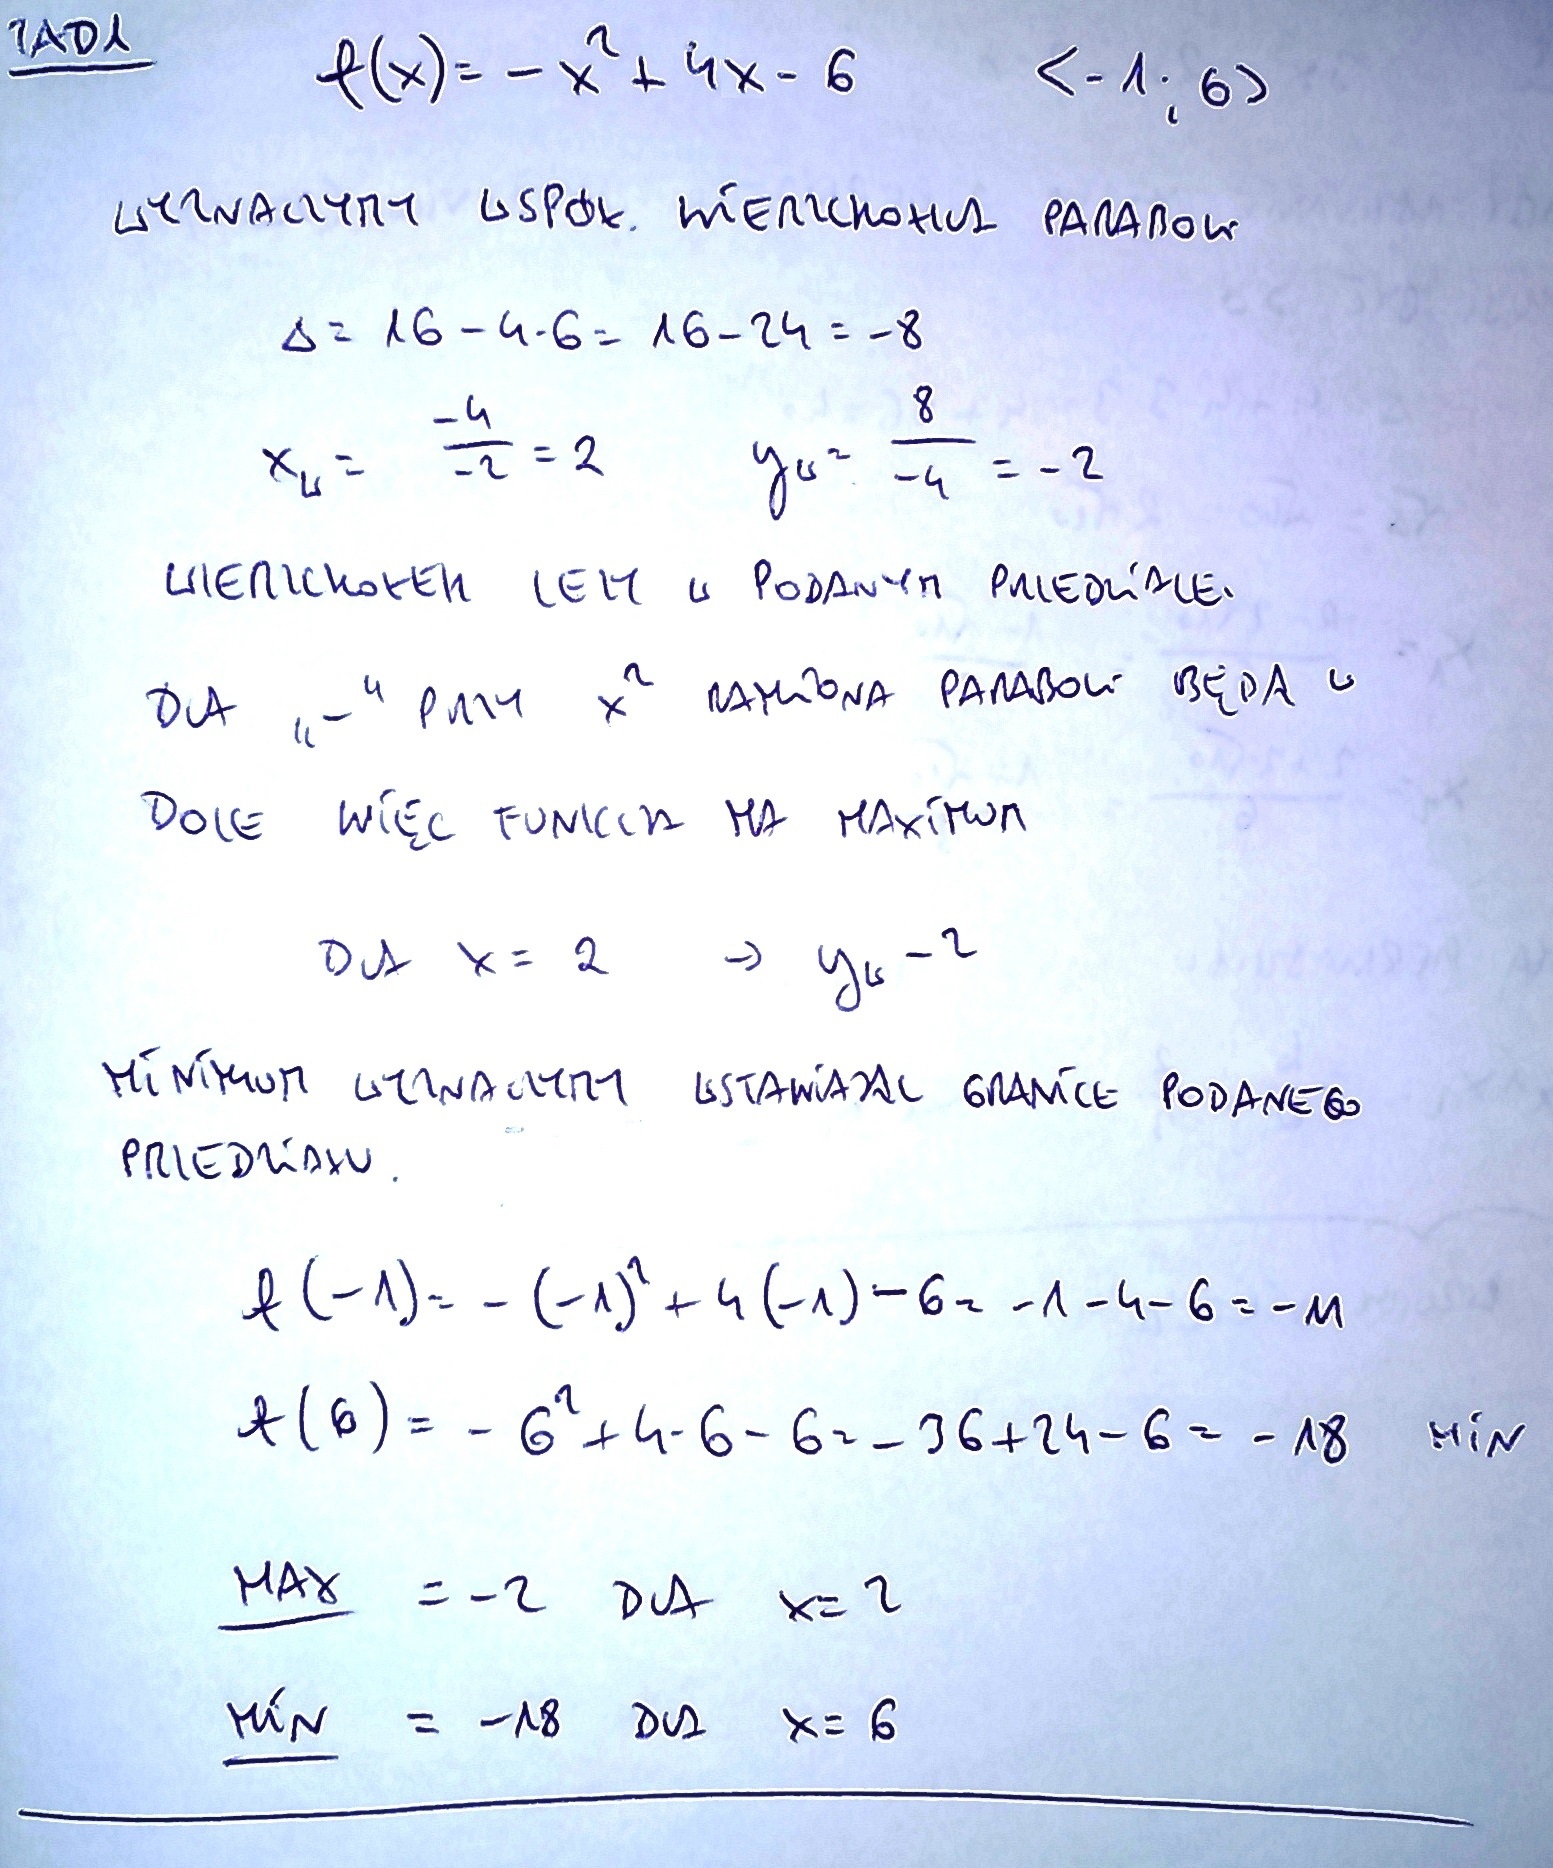 ZAD1
f(x) = -x² + 4x - 6 <-1; 6>
WYZNACZYMY WSPÓŁ. WIERZCHOŁKA PARABOLI
Δ = 16 - 4·6 = 16 - 24 = -8
x_w = -4/-2 = 2 y_w = 8/-4 = -2
WIERZCHOŁEK LEŻY W PODANYM PRZEDZIALE.
DLA „-" PRZY x² RAMIONA PARABOLI BĘDĄ W
DOLE WIĘC FUNKCJA MA MAXIMUM
DLA x = 2 → y_w -2
MINIMUM WYZNACZYMY WSTAWIAJĄC GRANICE PODANEGO
PRZEDZIAŁU.
f(-1) = -(-1)² + 4(-1) - 6 = -1 - 4 - 6 = -11
f(6) = -6² + 4·6 - 6 = -36 + 24 - 6 = -18 MIN
MAX = -2 DLA x = 2
MIN = -18 DLA x = 6